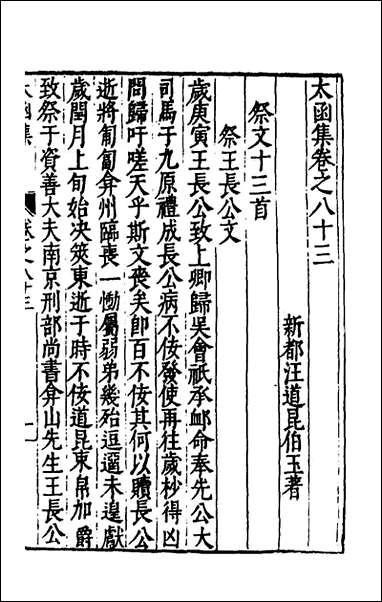 太函集卷之八十三
新都汪道昆伯玉著
祭文十三首
祭王長公文
歲庚寅王長公致上卿歸吳會祇承䘏命奉先公大
司馬于九原禮成長公病不佞發使再往歲杪得凶
問歸吁嗟天乎斯文喪矣卽百不佞其何以贖長公
逝將匍匐弇州臨喪一慟屬弱弟幾殆逗遛未遑獻
歲閏月上旬始决筴東逝于時不佞道昆束帛加爵
致祭于資善大夫南京刑部尚書弇山先生王長公
太函集
卷之八十三
一